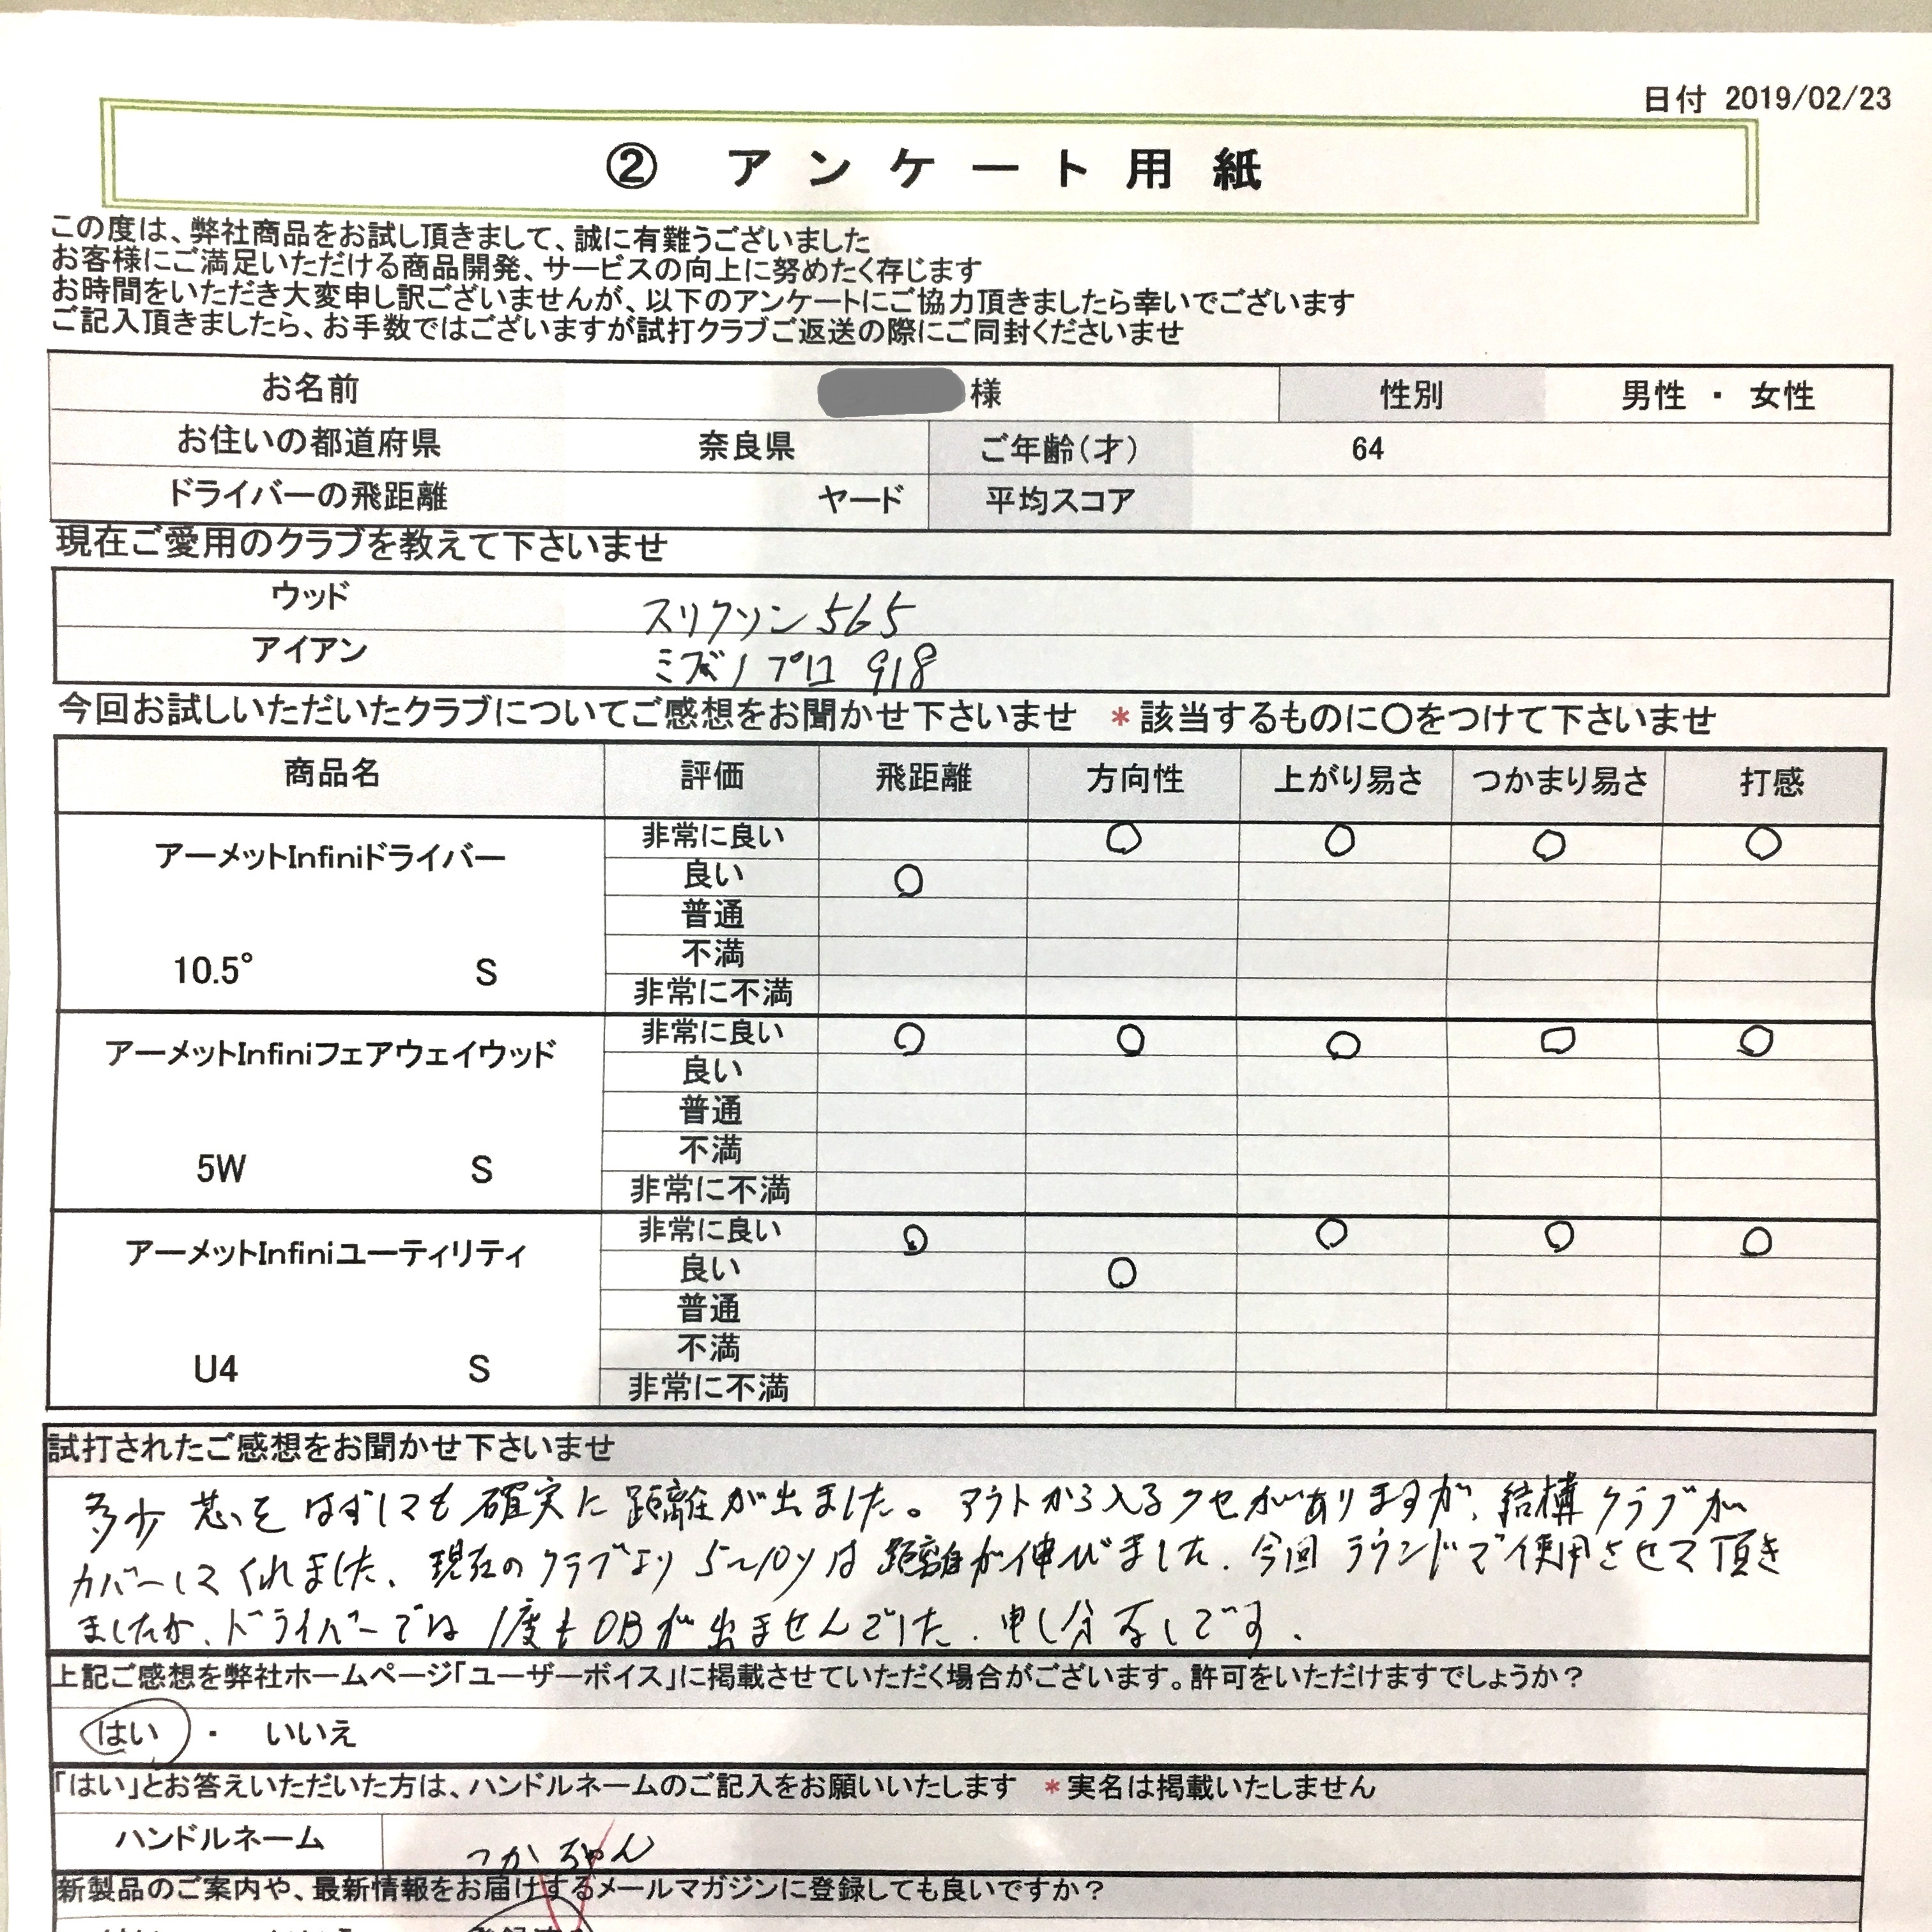 日付 2019/02/23
② アンケート用紙
この度は、弊社商品をお試し頂きまして、誠に有難うございました
お客様にご満足いただける商品開発、サービスの向上に努めたく存じます
お時間をいただき大変申し訳ございませんが、以下のアンケートにご協力頂きましたら幸いでございます
ご記入頂きましたら、お手数ではございますが試打クラブご返送の際にご同封くださいませ
お名前 様 性別 男性 ・ 女性
お住いの都道府県 奈良県 ご年齢(才) 64
ドライバーの飛距離 ヤード 平均スコア
現在ご愛用のクラブを教えて下さいませ
ウッド スリクソン 565
アイアン ミズノプロ 918
今回お試しいただいたクラブについてご感想をお聞かせ下さいませ *該当するものに〇をつけて下さいませ
商品名 評価 飛距離 方向性 上がり易さ つかまり易さ 打感
アーメットInfiniドライバー 非常に良い 〇 〇 〇 〇
良い 〇
普通
10.5° S 不満
非常に不満
アーメットInfiniフェアウェイウッド 非常に良い 〇 〇 〇 〇 〇
良い
普通
5W S 不満
非常に不満
アーメットInfiniユーティリティ 非常に良い 〇 〇 〇 〇
良い 〇
普通
U4 S 不満
非常に不満
試打されたご感想をお聞かせ下さいませ
多少芯をはずしても確実に距離が出ました。アウトから入るクセがありますが、結構クラブが
カバーしてくれました、現在のクラブより5~10yは距離が伸びました.今回ラウンドで使用させて頂き
ましたが、ドライバーでは1度もOBが出ませんでした.申し分なしです.
上記ご感想を弊社ホームページ「ユーザーボイス」に掲載させていただく場合がございます。許可をいただけますでしょうか?
はい ・ いいえ
「はい」とお答えいただいた方は、ハンドルネームのご記入をお願いいたします *実名は掲載いたしません
ハンドルネーム つかちゃん
新製品のご案内や、最新情報をお届けするメールマガジンに登録しても良いですか?